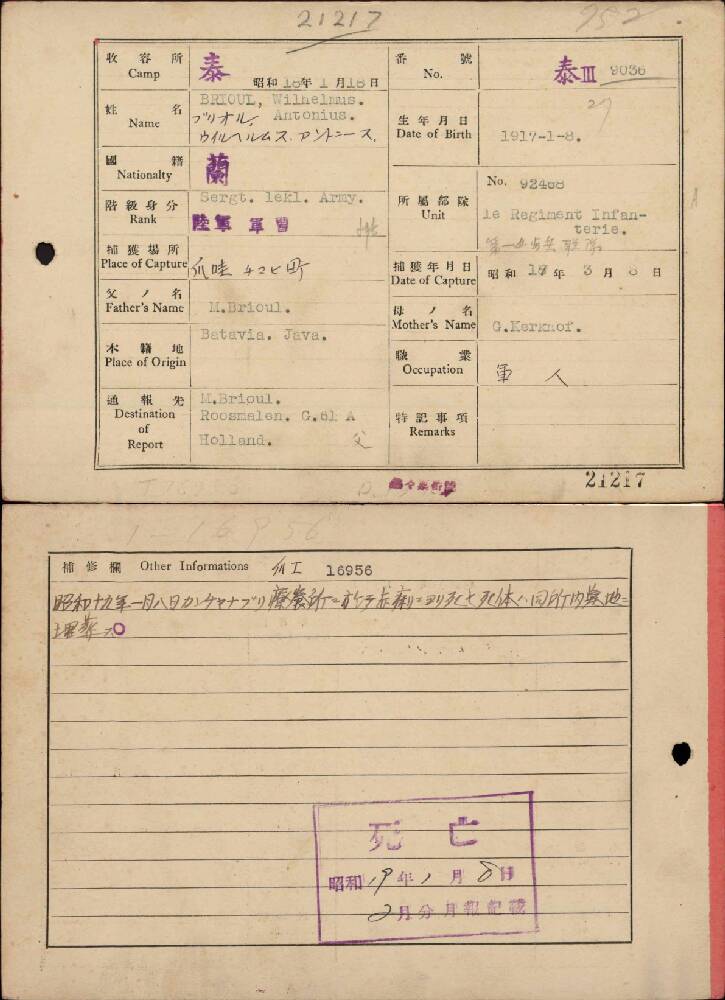 21217
収容所 Camp 泰 昭和 18年 1月18日
番號 No. 泰III 9036
姓名 Name BRIOUL, Wilhelmus. Antonius.
ブリオル,
ウイルヘルムス.アントニース.
27
生年月日 Date of Birth 1917-1-8.
國籍 Nationality 蘭
階級身分 Rank Sergt. 1ekl. Army.
陸軍 軍曹
所屬部隊 Unit No. 92468
1e Regiment Infan-
terie.
捕獲場所 Place of Capture 爪哇 チマヒ町
捕獲年月日 Date of Capture 昭和 17 年 3 月 8 日
父ノ名 Father's Name M.Brioul.
母ノ名 Mother's Name G.Kerkhof.
本籍地 Place of Origin Batavia. Java.
職業 Occupation 軍人
通報先 Destination of Report M.Brioul.
Roosmalen. G.61 A
Holland. 父
特記事項 Remarks
21217
補修欄 Other Informations 爪工 16956
昭和十九年一月八日カンチャナブリ療養所ニ於テ赤痢ニヨリ死亡 死体ハ同所内墓地ニ
埋葬ス
死亡
昭和19年1月8日
2月分月報記載